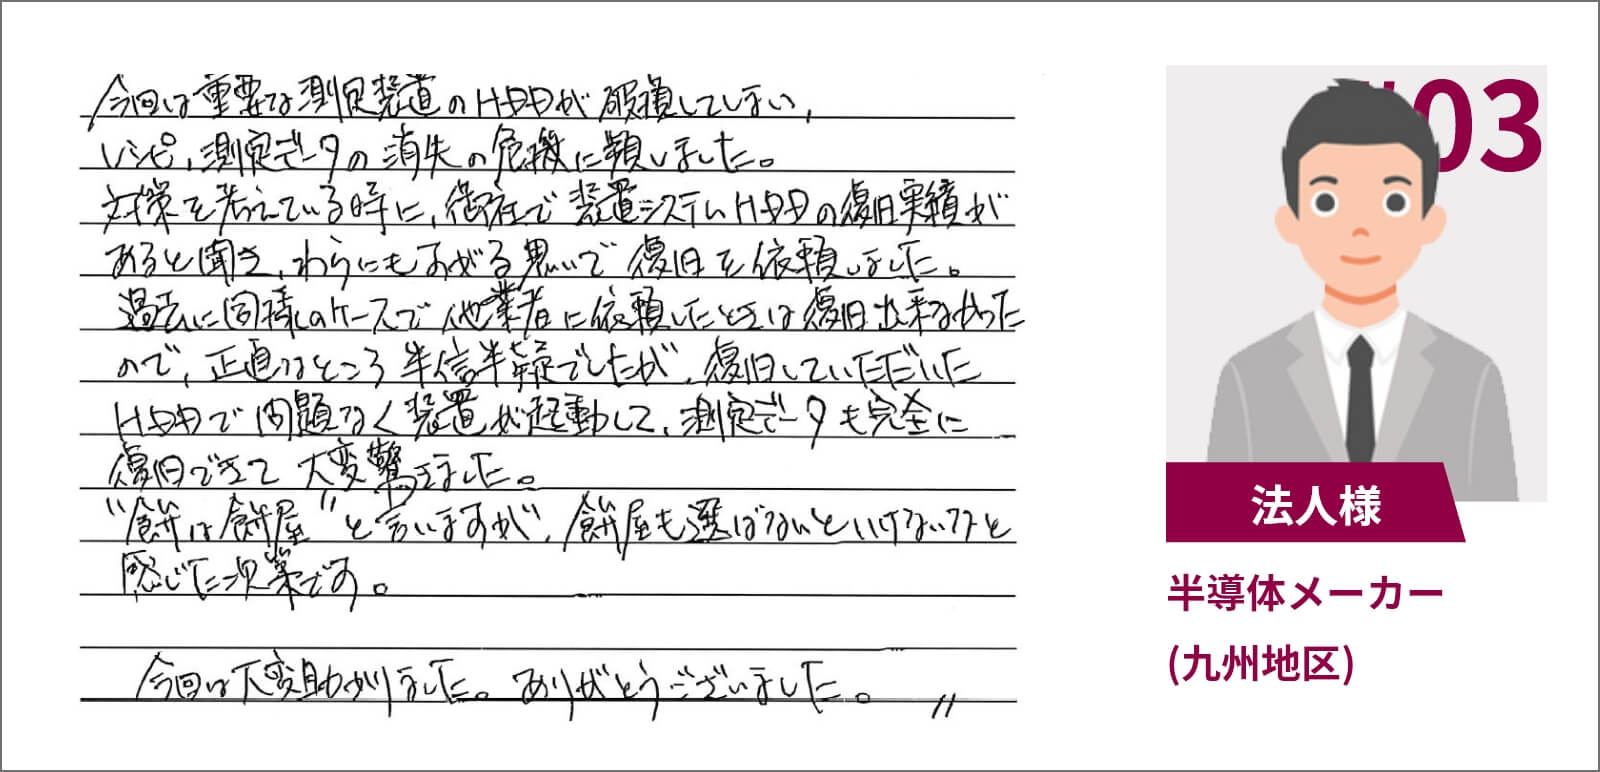 今回は重要な測定装置のHDDが破損してしまい,
レシピ,測定データの消失の危機に頻しました。
対策を考えている時に,御社で装置システムHDDの復旧実績が
あると聞き,わらにもすがる思いで復旧を依頼しました。
過去に同様のケースで他業者に依頼したときは復旧出来なかった
ので,正直なところ半信半疑でしたが,復旧していただいた
HDDで問題なく装置が起動して,測定データも完全に
復旧できて大変驚きました。
"餅は餅屋"と言いますが,餅屋も選ばないといけないなと
感じた次第です。
今回は大変助かりました。ありがとうございました。〃
03
法人様
半導体メーカー
(九州地区)